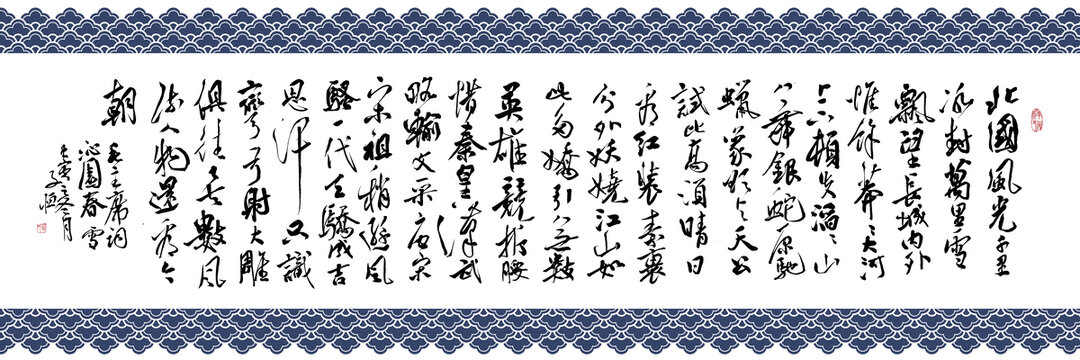 北國風光千里
冰封萬里雪
飄望長城内外
惟餘莽々大河
上下頓失滔々山
舞銀蛇原馳
蠟象欲与天公
試比高須晴日
看红裝素裹
分外妖嬈江山如
此多嬌引無數
英雄競折腰
惜秦皇漢武
略輸文采唐宗
宋祖稍遜風
騷一代天驕成吉
思汗只識
彎弓射大雕
俱往矣數風
流人物還看今
朝
毛主席詞
沁園春雪